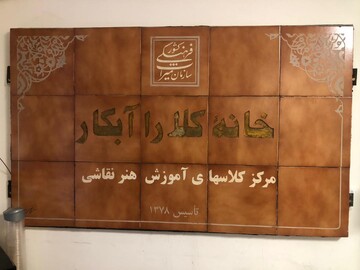 سازمان میراث فرهنگی کشور
خانه کلارا آبکار
مرکز کلاسهای آموزش هنر نقاشی
تاسیس ۱۳۷۸